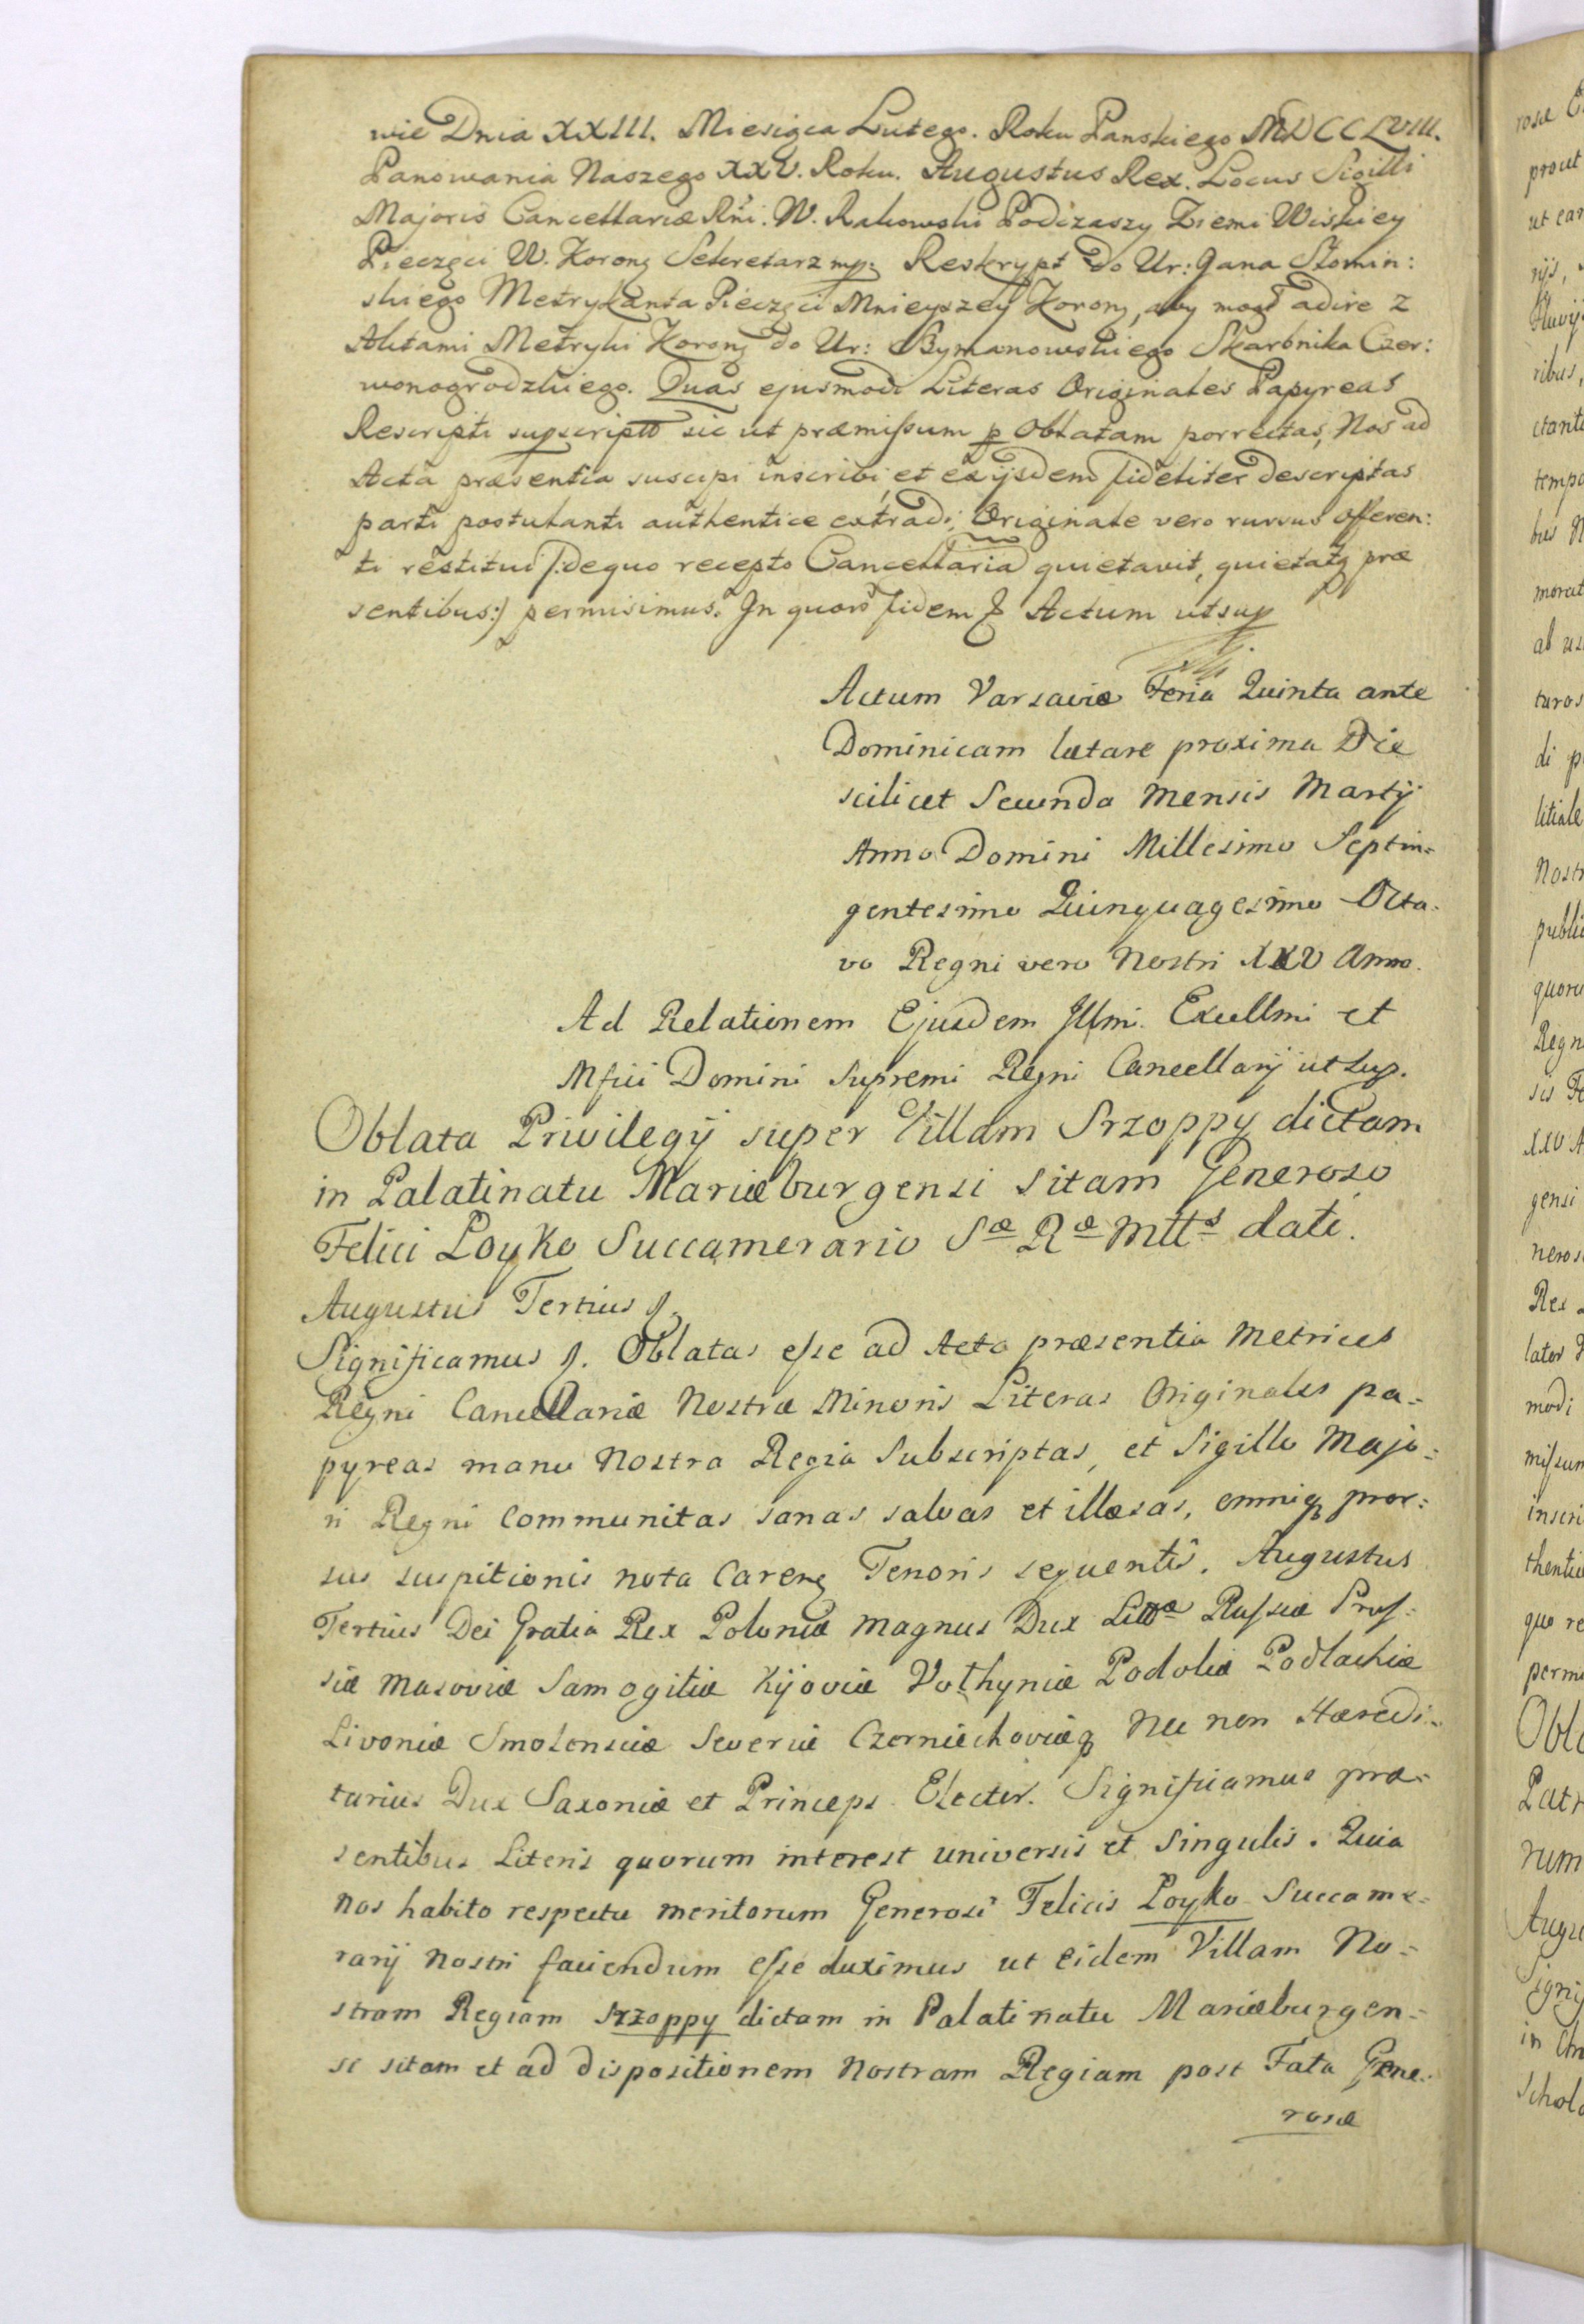 wie Dnia XXIII. Miesiąca Lutego. Roku Panskiego MDCCLVIII.
Panowania Naszego XXV. Roku. Augustus Rex. Locus Sigilli
Majoris Cancellariæ Rñi. W. Rakowski Podczaszy Ziemi Wiskiey
Pieczęci W. Koronẏ Sekretarz mp. Reskrypt do Ur: Jana Słomin:
skiego Metrykanta Pieczęci Mnieyszey Koronẏ, aby mogł adire z
Aktami Metryki Koronẏ do Ur: Bymanowskiego Skarbnika Czer:
wonogrodzkiego. Duas ejusmodi Literas Originales Papyreas
Rescripti supscriptt sic ut præmissum p Oblatam porrectas, Nos ad
Acta præsentia suscipi inscribi, et exijsdem fideliter descriptas
parti postulanti authentice extradi, Originale vero rursus offeren:
ti restitui /:dequo recepto Cancellaria quietavit, quietatq præ
sentibus:/ permisimus. In quorũ fidem & Actum utsup
Actum Varsaviæ Feria Quinta ante
Dominicam lætare proxima Die
scilicet Secunda Mensis Martij
Anno Domini Millesimo Septin=
gentesimo Quinquagesimo Octa-
vo Regni vero Nostri XXV Anno.
Ad Relationem Ejusdem Illmi. Excellmi et
Mfici Domini Supremi Regni Cancellarij ut Sup.
Oblata Privilegij super Villam Srzoppy dictam
in Palatinatu Mariæburgensi sitam Generoso
Felici Łoyko Succamerario Sæ Ræ Mtts dati.
Augustus Tertius &.
Significamus &. Oblatas esse ad Acta præsentia Metrices
Regni Cancellariæ Nostræ Minoris Literas Originales pa=
pyreas manu Nostra Regia Subscriptas, et Sigillo Majo=
ri Regni Communitas sanas salvas et illæsas, omniq pror:
sus suspitionis nota Careng Tenoris sequentis. Augustus
Tertius Dei Gratia Rex Poloniæ Magnus Dux Littæ Russiæ Prus:
siæ Masoviæ Samogitiæ Kijoviæ Volhyniæ Podoliæ Podlachiæ
Livoniæ Smolensciæ Severiæ Czerniechoviæq Nec non Hæredi=
tarius Dux Saxoniæ et Princeps Elector. Significamus præ=
sentibus Literis quorum interest universis et singulis. Quia
nos habito respectu meritorum Generosi Felicis Łoyko Succame=
rarij Nostri faciendum esse duximus ut eidem Villam No=
stram Regiam Srzoppy dictam in Palatinatu Mariæburgen=
si sitam et ad dispositionem Nostram Regiam post Fata Gene=
rosæ